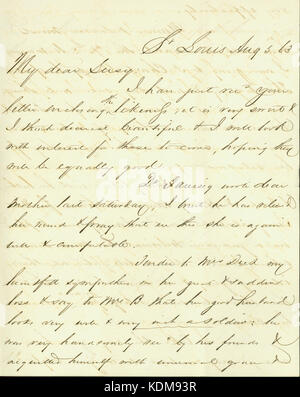 St Louis Aug 3, 63
My dear
I have just recd your
letter enclosing the likeness, it is very sweet &
I think dearest beautiful & I will look
with interest for those to come, hoping they
will be equally good.
Dr wrote dear
Mother last Saturday, I trust he has relieved
her mind & pray that ere this she is again
well & comfortable.
Tender to Mrs my
heartfelt sympathies in her great & sudden
loss & say to Mrs B that her good husband
looks very well & very not a soldier; he
was very handsomely recd by his friends &
acquitted himself with unusual grace &
alamy
Image ID: KDM93R
www.alamy.com